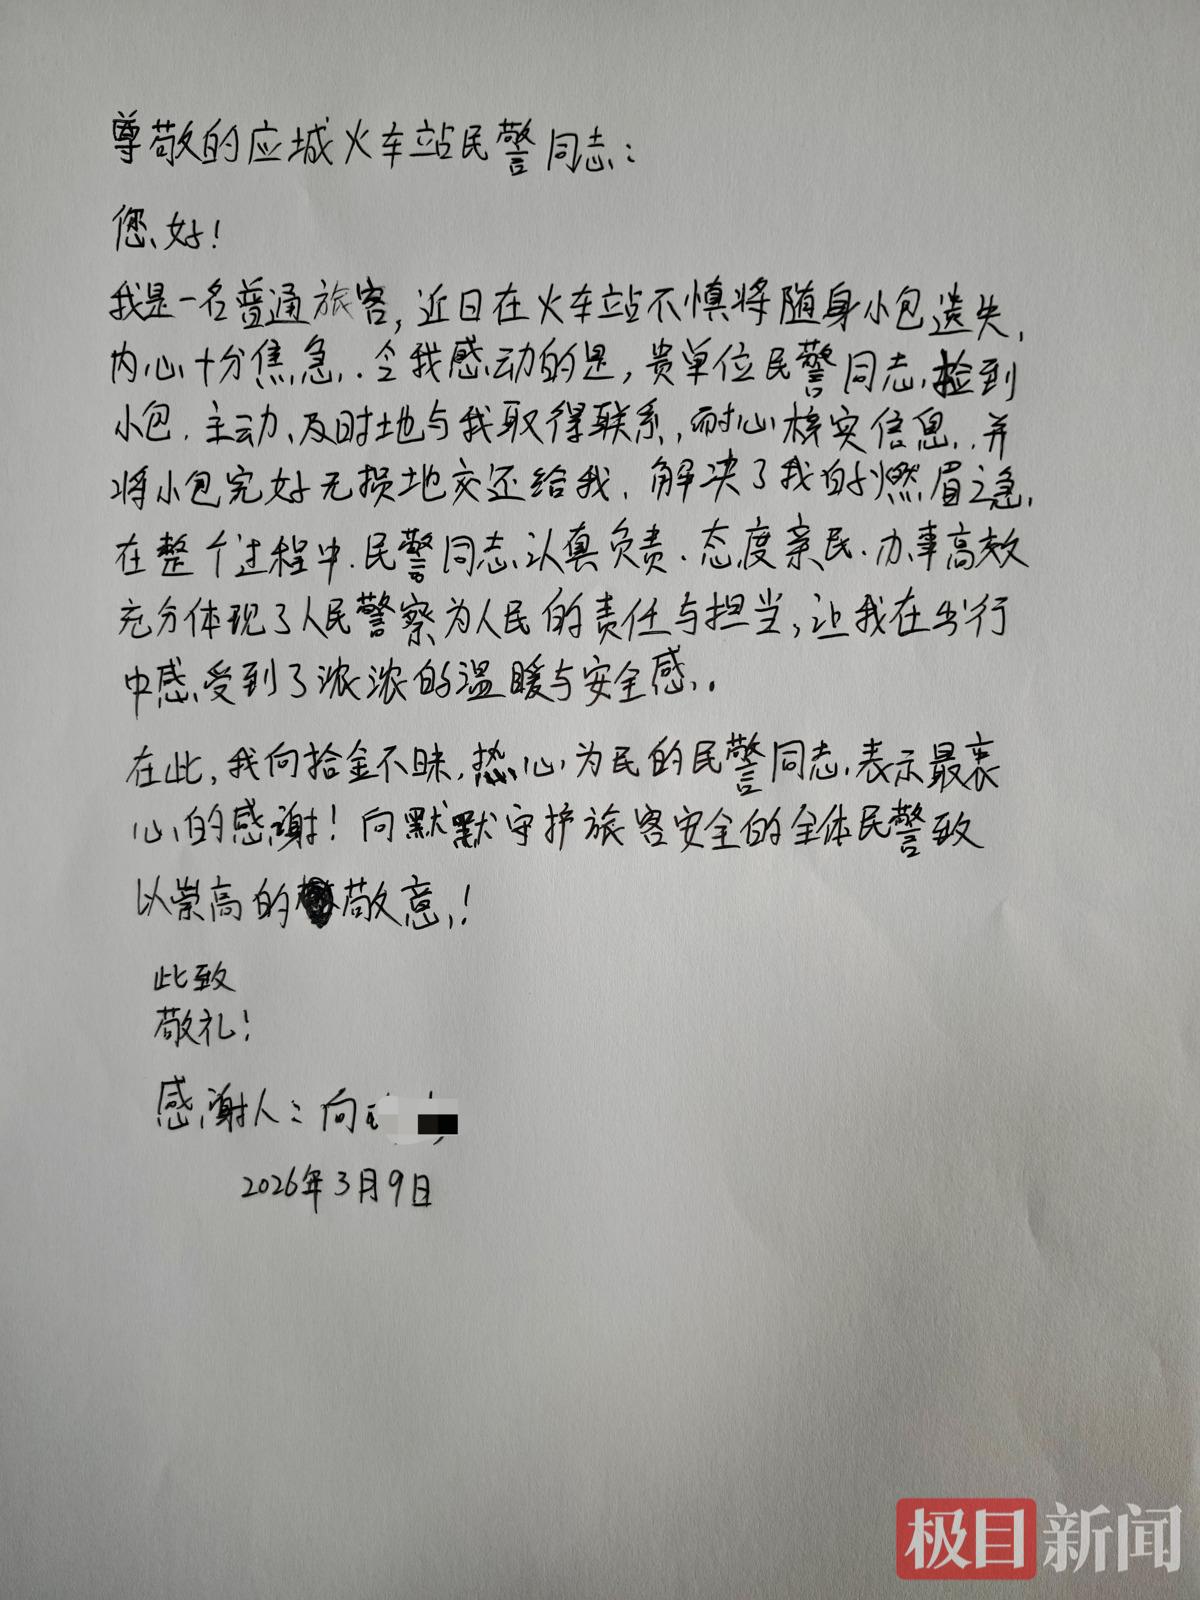 尊敬的应城火车站民警同志：
您好！
我是一名普通旅客，近日在火车站不慎将随身小包遗失，
内心十分焦急．令我感动的是，贵单位民警同志捡到
小包．主动、及时地与我取得联系，耐心核实信息．并
将小包完好无损地交还给我．解决了我的燃眉之急，
在整个过程中．民警同志认真负责．态度亲民．办事高效
充分体现了人民警察为人民的责任与担当，让我在出行
中感受到了浓浓的温暖与安全感．
在此，我向拾金不昧，热心为民的民警同志表示最衷
心的感谢！向默默守护旅客安全的全体民警致
以崇高的敬意！
此致
敬礼！
感谢人：向
2026年3月9日
极目新闻